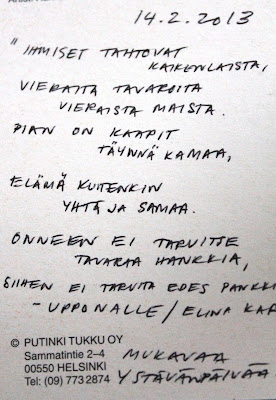 14.2.2013
" IHMISET TAHTOVAT
KAIKENLAISTA,
VIERAITA TAVAROITA
VIERAISTA MAISTA.
PIAN ON KAAPIT
TÄYNNÄ KAMAA,
ELÄMÄ KUITENKIN
YHTÄ JA SAMAA.
ONNEEN EI TARVITSE
TAVARAA HANKKIA,
SIIHEN EI TARVITA EDES PANKKI
- UPPONALLE / ELINA KAR
© PUTINKI TUKKU OY
Sammatintie 2–4
00550 HELSINKI
Tel: (09) 773 2874
MUKAVAA
YSTÄVÄNPÄIVÄÄ